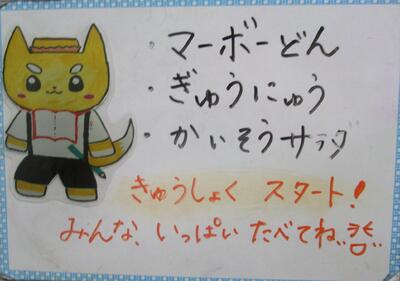 ・マーボーどん
・ぎゅうにゅう
・かいそうサラダ
きゅうしょく スタート!
みんな、いっぱい たべてね